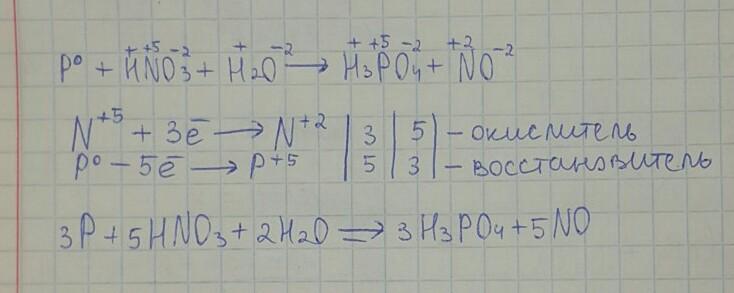 P⁰ + H⁺N⁺⁵O₃⁻² + H₂⁺O⁻² → H₃⁺P⁺⁵O₄⁻² + N⁺²O⁻²
N⁺⁵ + 3ē → N⁺² | 3 | 5 | – окислитель
P⁰ – 5ē → P⁺⁵ | 5 | 3 | – восстановитель
3P + 5HNO₃ + 2H₂O ⇒ 3H₃PO₄ + 5NO